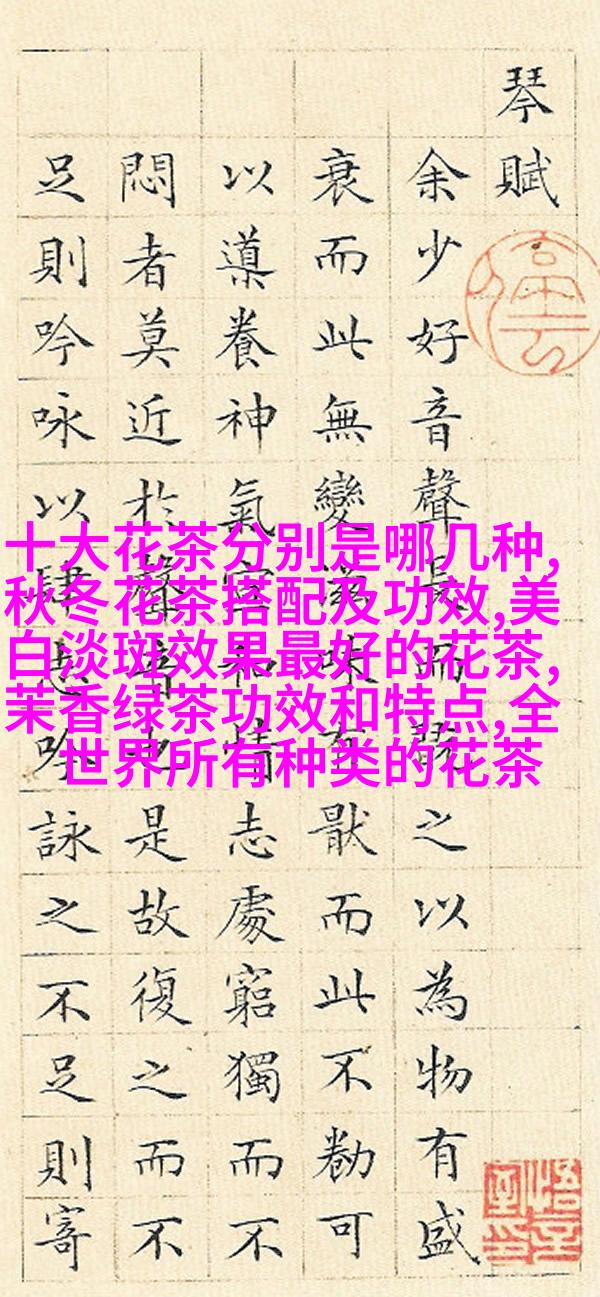 琴賦
余少好音聲長而翫之以為物有盛
衰而此無變滋味有猒而此不勌可
以導養神氣宣和情志處窮獨而不
悶者莫近於聲音也是故復之而不
足則吟咏以肆吟詠之不足則寄
十大花茶分别是哪几种,
秋冬花茶搭配及功效,美
白淡斑效果最好的花茶,
茉香绿茶功效和特点,全
世界所有种类的花茶